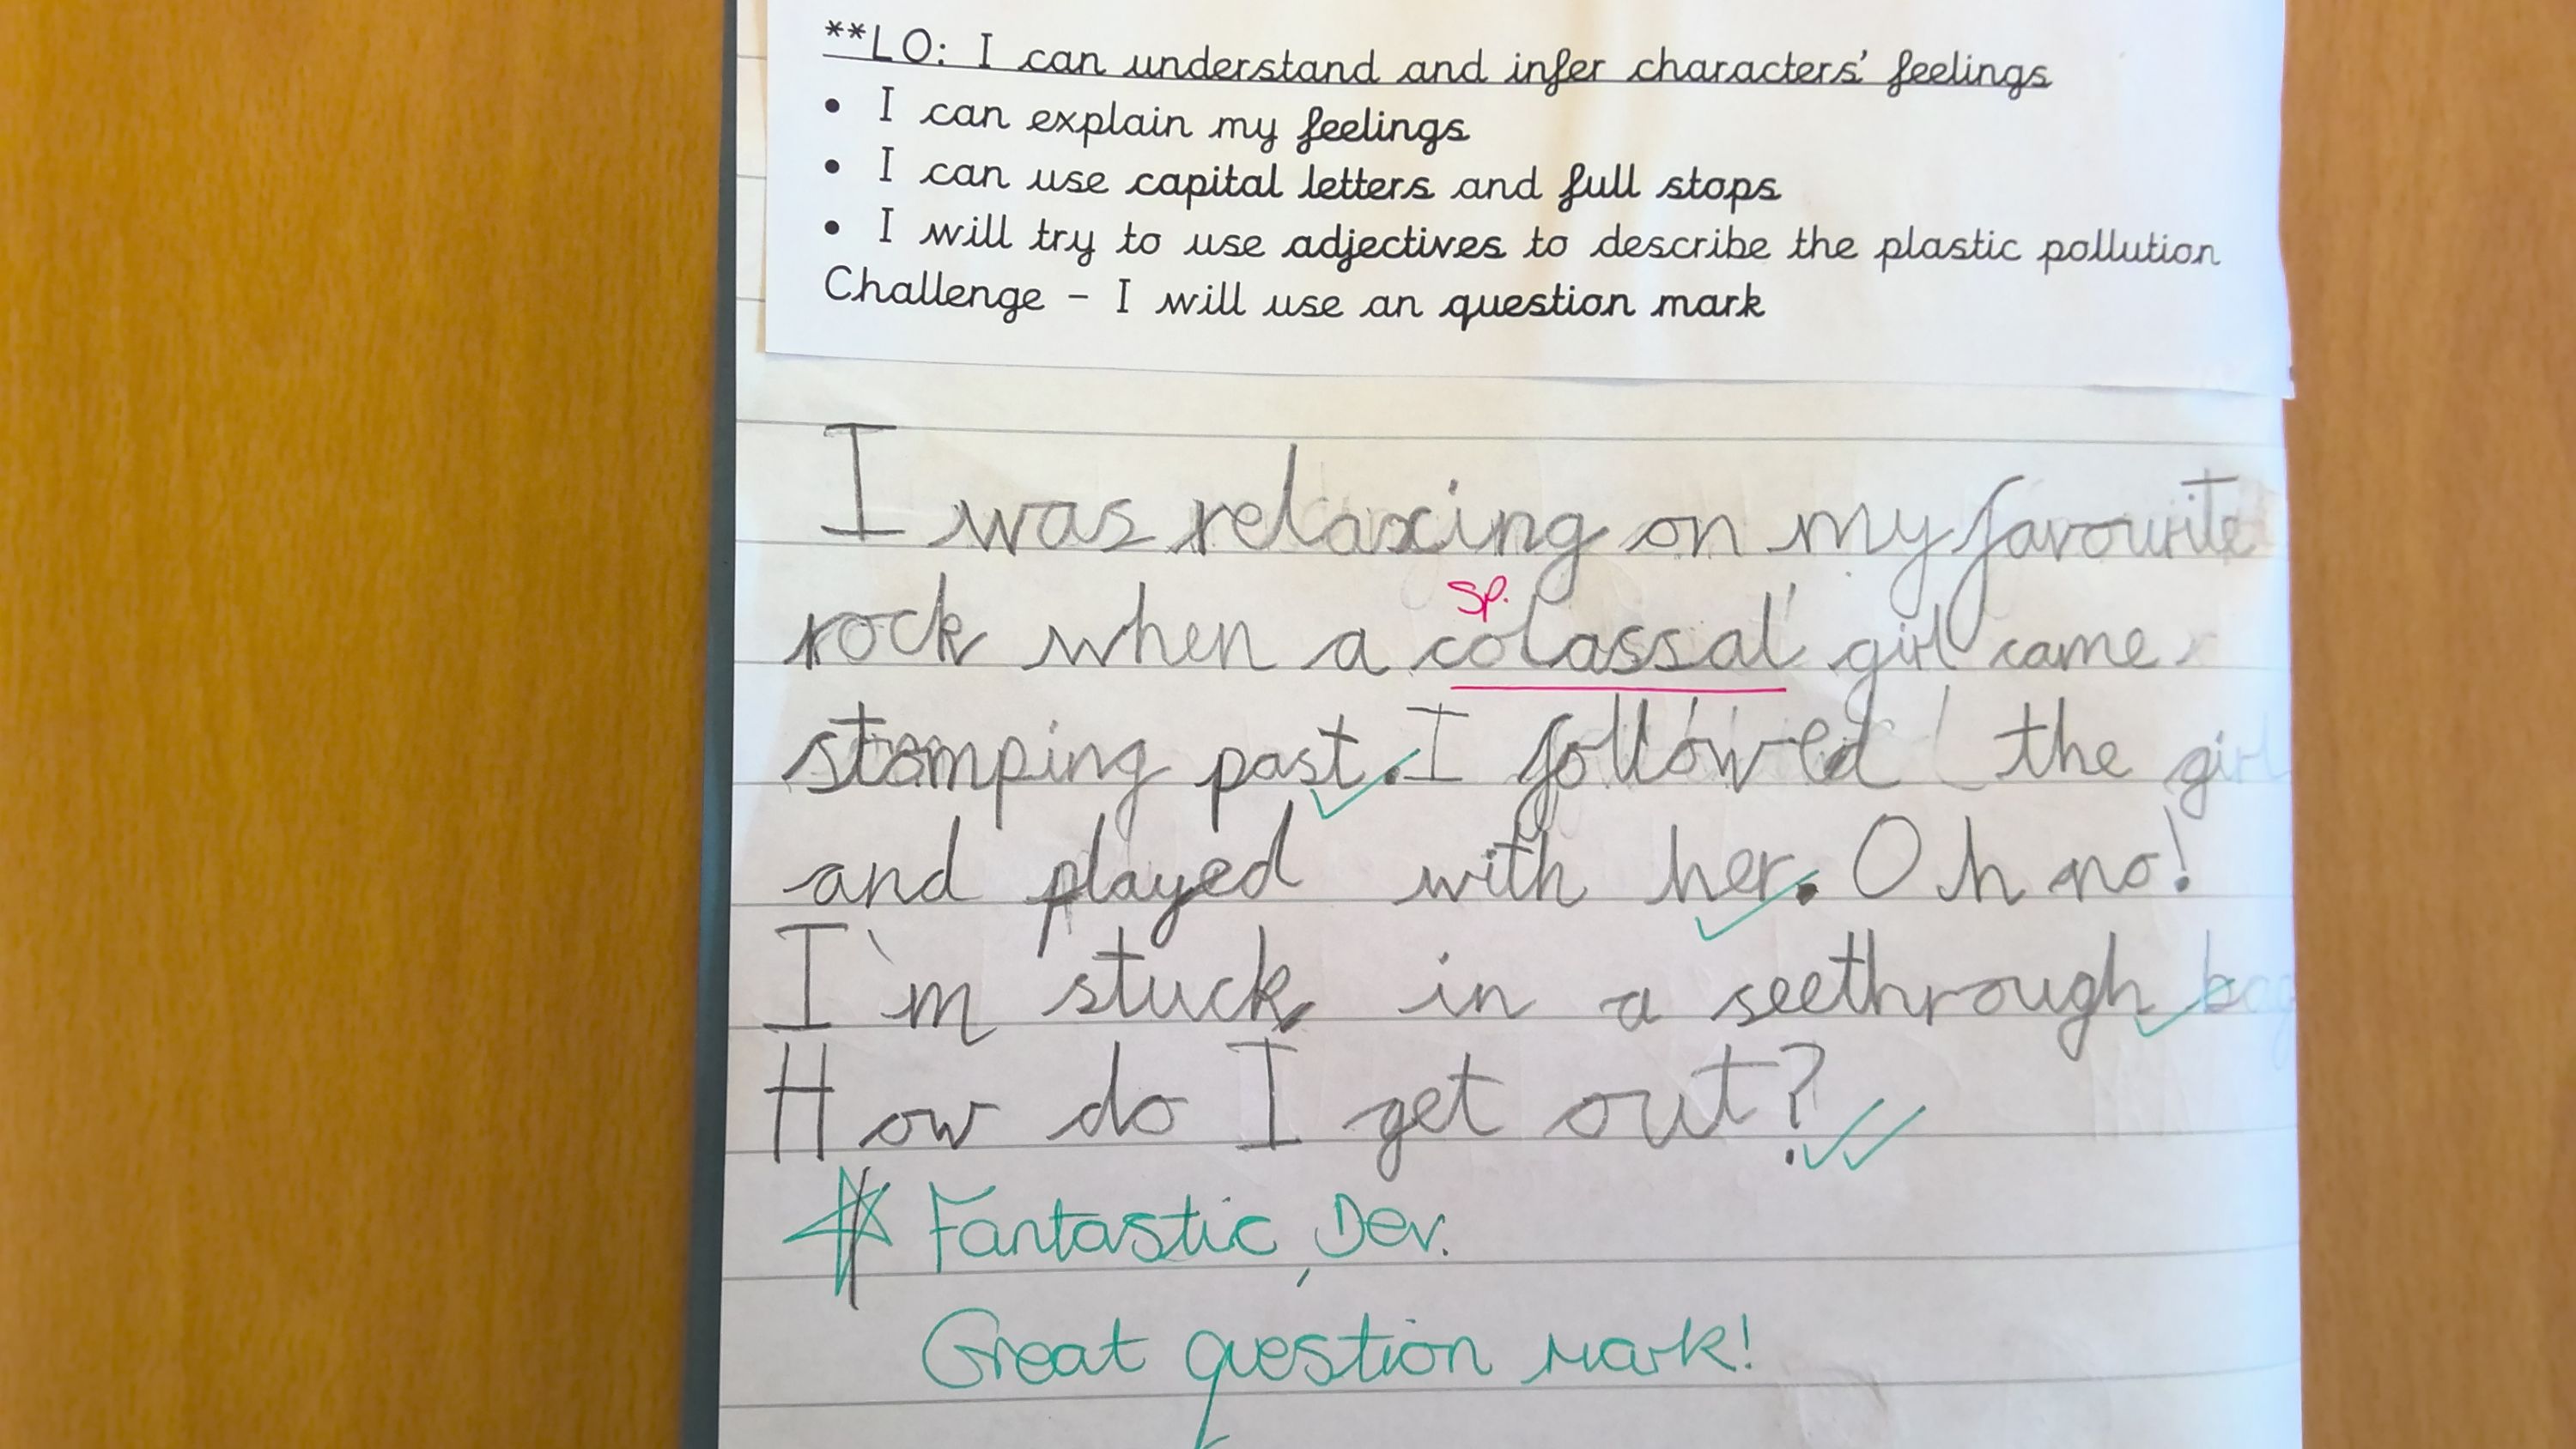 **LO: I can understand and infer characters' feelings
• I can explain my feelings
• I can use capital letters and full stops
• I will try to use adjectives to describe the plastic pollution
Challenge – I will use an question mark
I was relaxing on my favourite
sp.
rock when a colassal girl came
stomping past. I followed the girl
and played with her. Oh no!
I'm stuck in a seethrough bag
How do I get out?
Fantastic, Dev.
Great question mark!